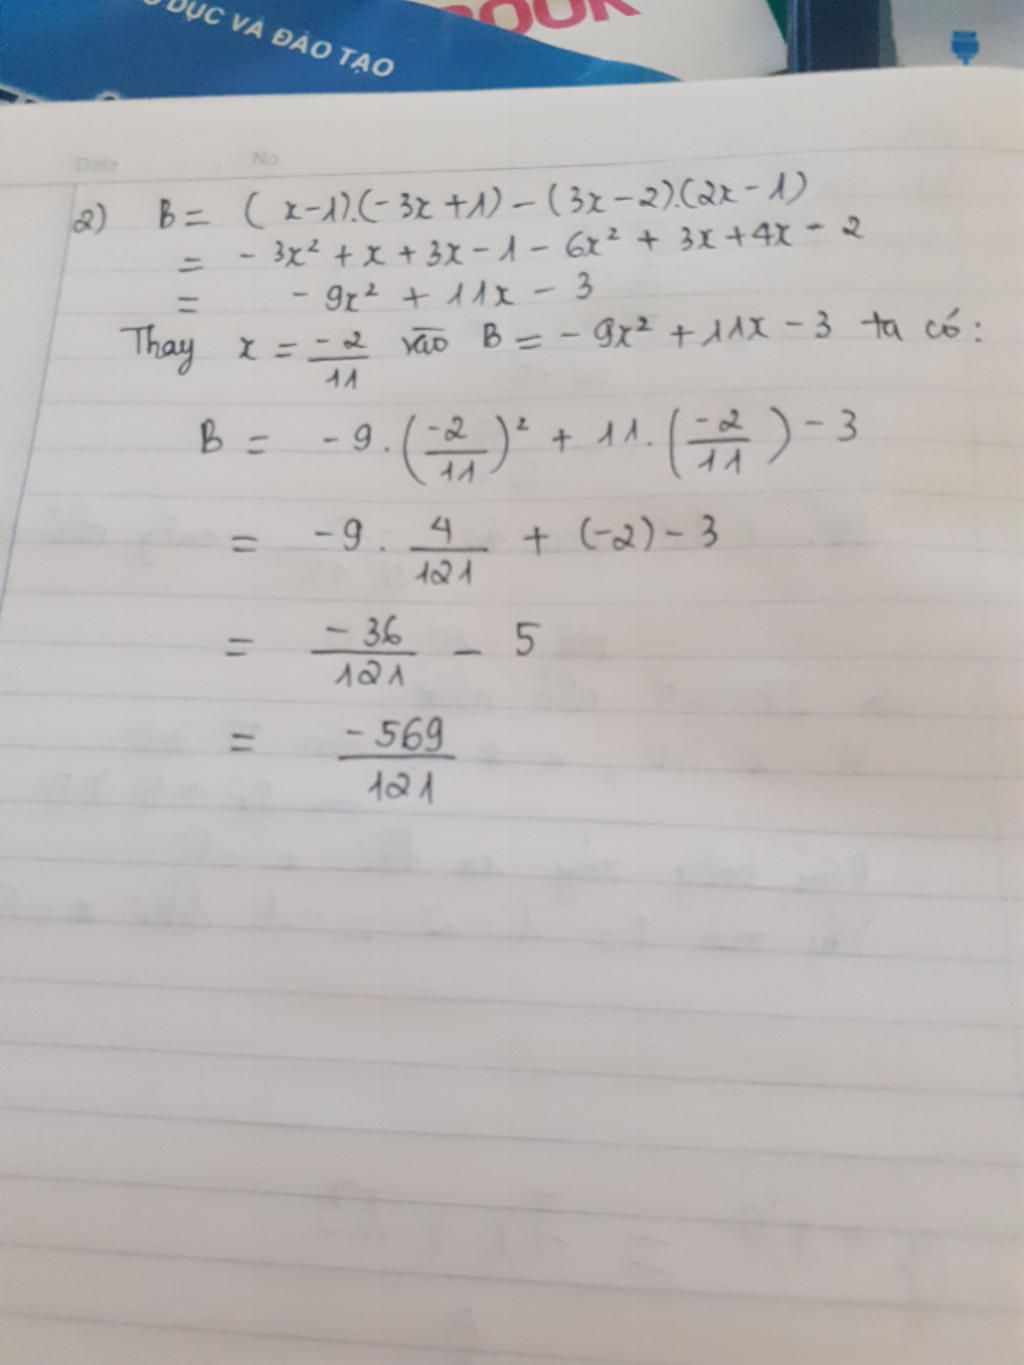 DỤC VÀ ĐÀO TẠO
OOK
Date No.
2) B = (x-1).(-3x+1)-(3x-2).(2x-1)
= -3x² + x + 3x - 1 - 6x² + 3x + 4x - 2
= -9x² + 11x - 3
Thay x = -2/11 vào B = -9x² + 11x - 3 ta có:
B = -9.(-2/11)² + 11.(-2/11) - 3
= -9. 4/121 + (-2) - 3
= -36/121 - 5
= -569/121